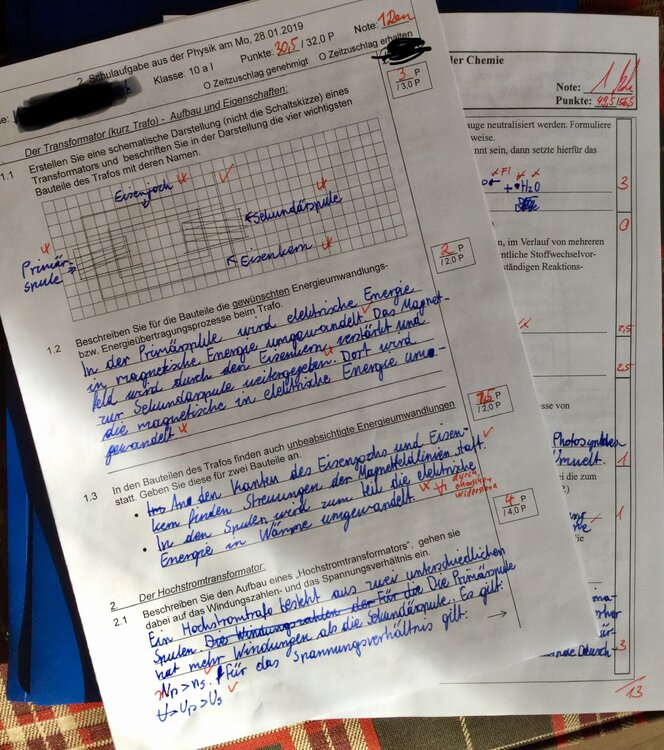 2. Schulaufgabe aus der Physik am Mo, 28.01.2019
Klasse: 10 a I
Punkte: 30,5 / 32,0 P
Note: 1
O Zeitzuschlag genehmigt O Zeitzuschlag erhalten
Der Transformator (kurz Trafo) - Aufbau und Eigenschaften:
3 P
/ 3,0 P
1.1 Erstellen Sie eine schematische Darstellung (nicht die Schaltskizze) eines
Transformators und beschriften Sie in der Darstellung die vier wichtigsten
Bauteile des Trafos mit deren Namen.
Eisenjoch
Sekundärspule
Primär-
spule
Eisenkern
2 P
/ 2,0 P
1.2 Beschreiben Sie für die Bauteile die gewünschten Energieumwandlungs-
bzw. Energieübertragungsprozesse beim Trafo.
In der Primärspule wird elektrische Energie
in magnetische Energie umgewandelt. Das Magnet-
feld wird durch den Eisenkern verstärkt und
zur Sekundärspule weitergegeben. Dort wird
die magnetische in elektrische Energie umge-
gewandelt.
1,5 P
/ 2,0 P
1.3 In den Bauteilen des Trafos finden auch unbeabsichtigte Energieumwandlungen
statt. Geben Sie diese für zwei Bauteile an.
• An den Kanten des Eisenjochs und Eisen-
kern finden Streuungen der Magnetfeldlinien statt.
• In den Spulen wird zum teil die elektrische
Energie in Wärme umgewandelt.
durch
ohmschen
Widerstand
4 P
/ 4,0 P
2. Der Hochstromtransformator:
2.1 Beschreiben Sie den Aufbau eines „Hochstromtransformators", gehen sie
dabei auf das Windungszahlen- und das Spannungsverhältnis ein.
Ein Hochstromtrafo besteht aus zwei unterschiedlichen
Spulen. Die Windungszahlen der Für die Die Primärspule
hat mehr Windungen als die Sekundärspule. Es gilt:
Np > ns. Für das Spannungsverhältnis gilt:
Up > Us
der Chemie
Note: 1
Punkte: 49,5/56,5
auge neutralisiert werden. Formuliere
weise.
nnt sein, dann setzte hierfür das
+ H2O
3
0
n, im Verlauf von mehreren
entliche Stoffwechselvor-
ständigen Reaktions-
2,5
2,5
esse von
Photosynthese
Umwelt.
1
bei die zum
1
3
13